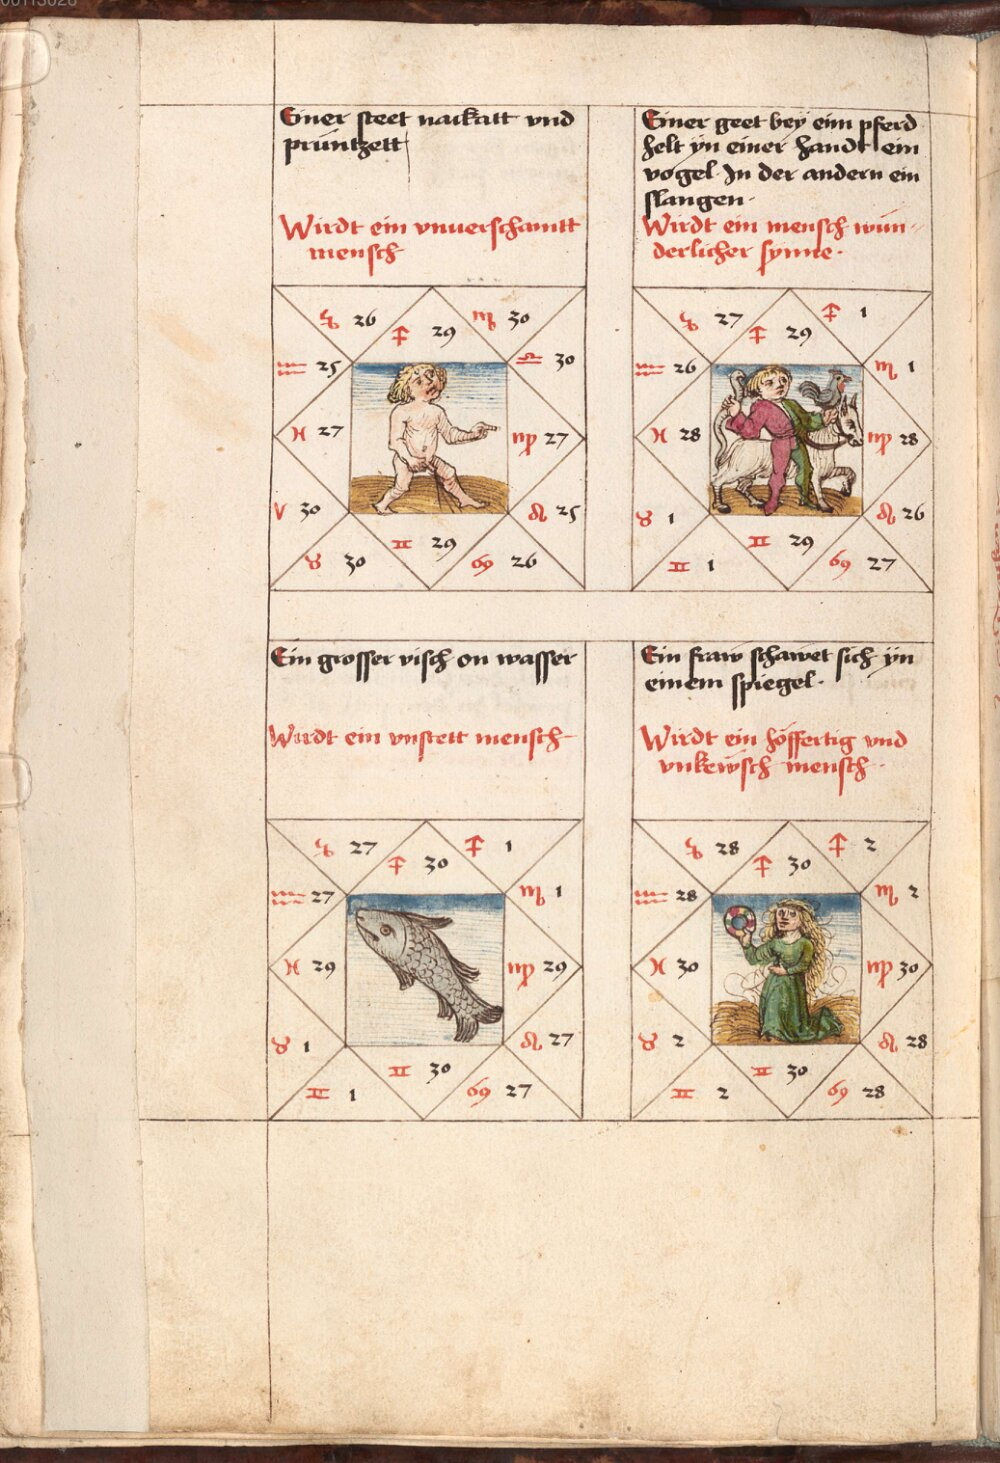 Einer steet nackatt vnd
prüntzett
Wirdt ein vnuerschamtt
mensch
♑ 26
♐ 29
♏ 30
♒ 25
♎ 30
♓ 27
♍ 27
♈ 30
♌ 25
♊ 29
♉ 30
♋ 26
Einer geet bey eim pferd
helt yn einer handt ein
vogel. In der andern ein
slangen.
Wirdt ein mensch wun-
derlicher synne.
♑ 27
♐ 29
♐ 1
♒ 26
♏ 1
♓ 28
♍ 28
♉ 1
♌ 26
♊ 29
♊ 1
♋ 27
Ein grosser visch on wasser
Wirdt ein vnstett mensch
♑ 27
♐ 30
♐ 1
♒ 27
♏ 1
♓ 29
♍ 29
♉ 1
♌ 27
♊ 30
♊ 1
♋ 27
Ein fraw schawet sich yn
einem spiegel.
Wirdt ein höffertig vnd
vnkewsch mensch.
♑ 28
♐ 30
♐ 2
♒ 28
♏ 2
♓ 30
♍ 30
♉ 2
♌ 28
♊ 30
♊ 2
♋ 28